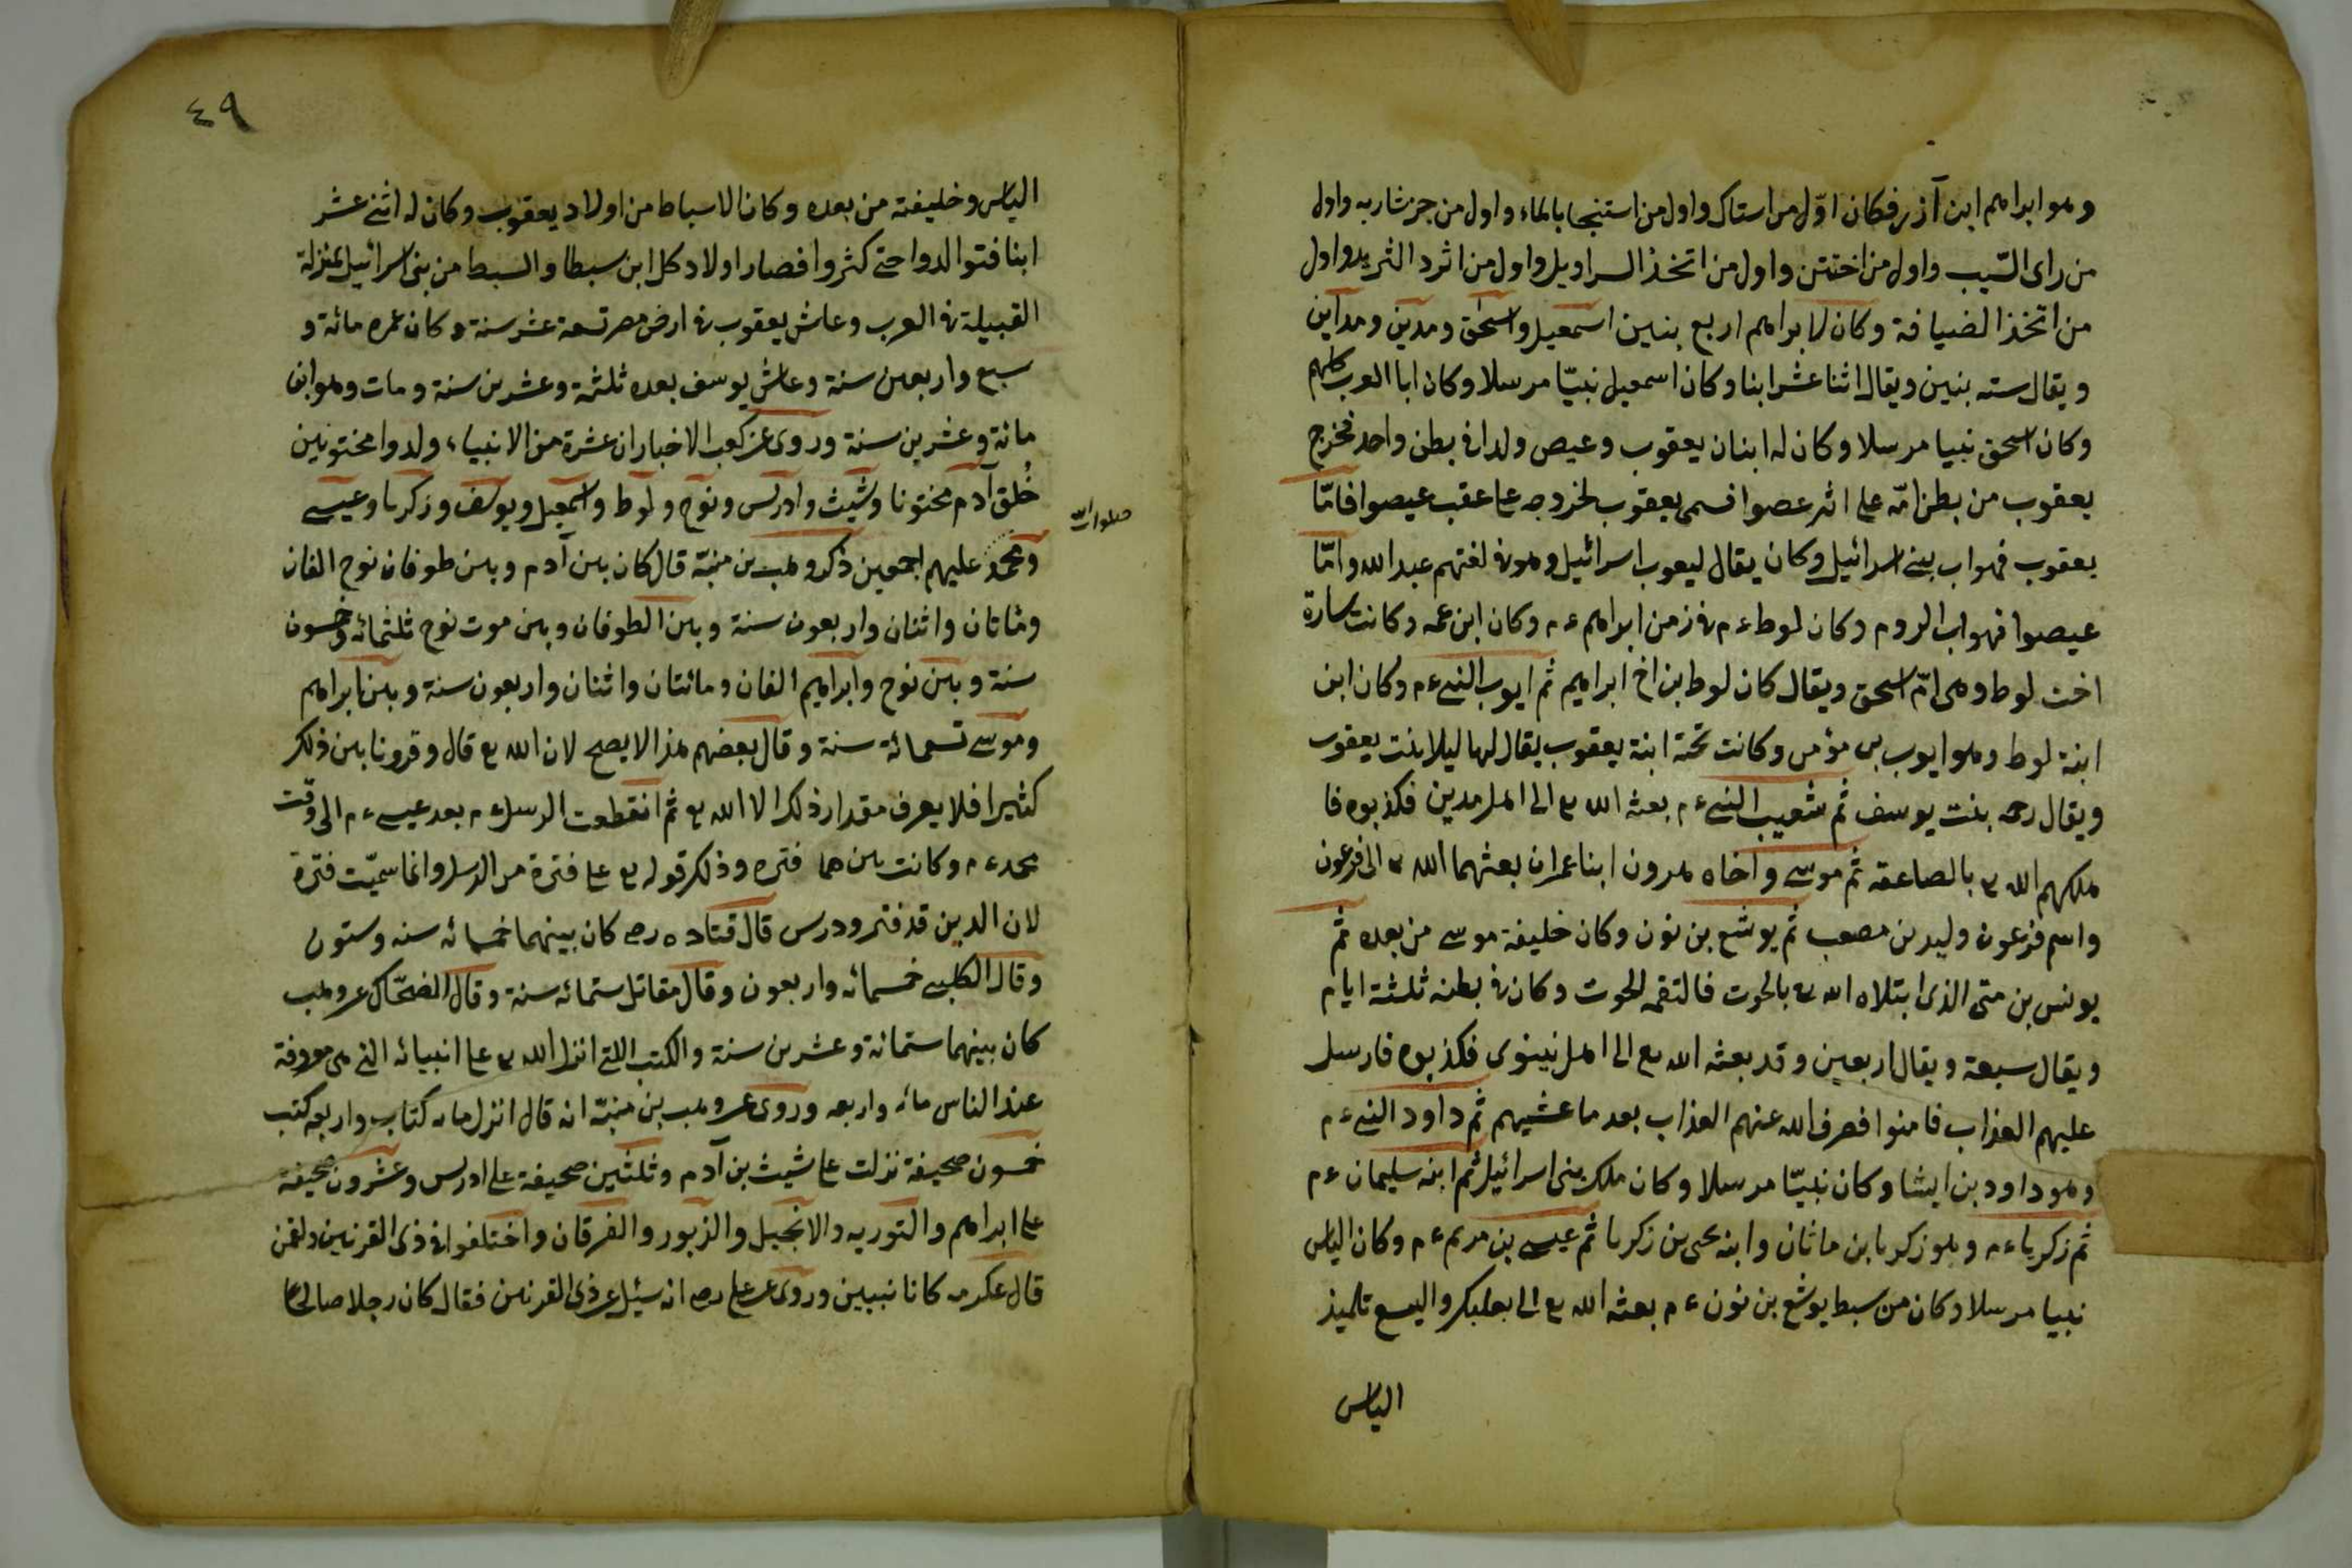 وهو ابراهيم ابن آزر فكان اوّل من استاك واول من استنجا بالماء واول من جز شاربه واول
من راى الشيب واول من اختتن واول من اتخذ السراويل واول من اثرد الثريد واول
من اتخذ الضيافة وكان لابراهيم اربع بنين اسمعيل واسحق ومدين ومداين
ويقال سته بنين ويقال اثنا عشر ابنا وكان اسمعيل نبيّا مرسلا وكان ابا العرب كلهم
وكان اسحق نبيا مرسلا وكان له ابنان يعقوب وعيص ولدا في بطن واحد فخرج
يعقوب من بطن امّه على اثر عصوا فسمى يعقوب لخروجه على عقب عيصوا فامّا
يعقوب فهو اب بنى اسرائيل وكان يقال ليعوب اسرائيل وهو في لغتهم عبد الله وامّا
عيصوا فهو اب الروم وكان لوط ع م في زمن ابراهيم ع م وكان ابن عمه وكانت سارة
اخت لوط وهى امّ اسحق ويقال كان لوط بن اخ ابراهيم ثم ايوب النبى ع م وكان ابن
ابنة لوط وهو ايوب بن مؤمن وكانت تحته ابنة يعقوب يقال لها ليلا بنت يعقوب
ويقال رحمه بنت يوسف ثم شعيب النبى ع م بعثه الله تع الى اهل مدين فكذبوه فا
هلكهم الله تع بالصاعقه ثم موسى واخاه هرون ابنا عمران بعثهما الله تع الى فرعون
واسم فرعون وليد بن مصعب ثم يوشع بن نون وكان خليفة موسى من بعده ثم
يونس بن متى الذى ابتلاه الله تع بالحوت فالتقمه الحوت وكان في بطنه ثلثة ايام
ويقال سبعة ويقال اربعين وقد بعثه الله تع الى اهل نينوى فكذبوه فارسل
عليهم العذاب فامنوا فصرف الله عنهم العذاب بعد ما غشيهم ثم داود النبى ع م
وهو داود بن ايشا وكان نبيّا مرسلا وكان ملك بنى اسرائيل ثم ابنه سليمان ع م
ثم زكرياء ع م وهو زكريا بن ماثان وابنه يحيى بن زكريا ثم عيسى بن مريم ع م وكان الياس
نبيا مرسلا وكان من سبط يوشع بن نون ع م بعثه الله تع الى بعلبك واليسع تلميذ
الياس
٤٩
الياس وخليفته من بعده وكان الاسباط من اولاد يعقوب وكان له اثنى عشر
ابنا فتوالدوا حتى كثروا فصار اولاد كل ابن سبطا والسبط من بنى اسرائيل بمنزلة
القبيلة في العرب وعاش يعقوب في ارض مصر تسعة عشر سنة وكان عمره مائة و
سبع واربعين سنة وعاش يوسف بعده ثلثة وعشرين سنة ومات وهو ابن
مائة وعشرين سنة وروى عن كعب الاخبار ان عشرة من الانبياء ولدوا مختونين
خُلق آدم مختونا وشيث وادريس ونوح ولوط واسمعيل ويوسف وزكريا وعيسى
ومحمد عليهم اجمعين ذكر وهب بن منبّه قال كان بين آدم وبين طوفان نوح الفان
صلوات الله
ومائتان واثنان واربعون سنة وبين الطوفان وبين موت نوح ثلثمائه وخمسون
سنة وبين نوح وابراهيم الفان ومائتان واثنان واربعون سنة وبين ابراهيم
وموسى تسعمائة سنة وقال بعضهم هذا لا يصح لان الله تع قال وقرونا بين ذلك
كثيرا فلا يعرف مقدار ذلك الا الله تع ثم انقطعت الرسل ع م بعد عيسى ع م الى وقت
محمد ع م وكانت بينهما فتره وذلك قوله تع على فترة من الرسل وانما سميّت فترة
لان الدين قد فتر ودرس قال قتاده رض كان بينهما خمسمائه سنه وستون
وقال الكلبى خمسمائه واربعون وقال مقاتل ستمائه سنة وقال الضحّاك عن وهب
كان بينهما ستمائة وعشرين سنة والكتب اللتى انزل الله تع على انبيائه التى هى معروفة
عند الناس مائه واربعه وروى عن وهب بن منبّه انه قال انزل مائه كتاب واربعه كتب
خمسون صحيفة نزلت على شيث بن آدم وثلثين صحيفة على ادريس وعشرون صحيفة
على ابراهيم والتوريه والانجيل والزبور والفرقان واختلفوا في ذى القرنين ولقمن
قال عكرمه كانا نبيين وروى عن على رض انه سئل عن ذى القرنين فقال كان رجلا صالحا